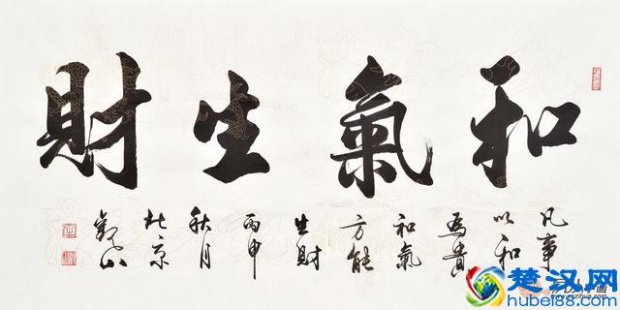 和氣生財
凡事
以和
為貴
和氣
方能
生財
丙申
秋月
北京
楚汉网
hubei88.com